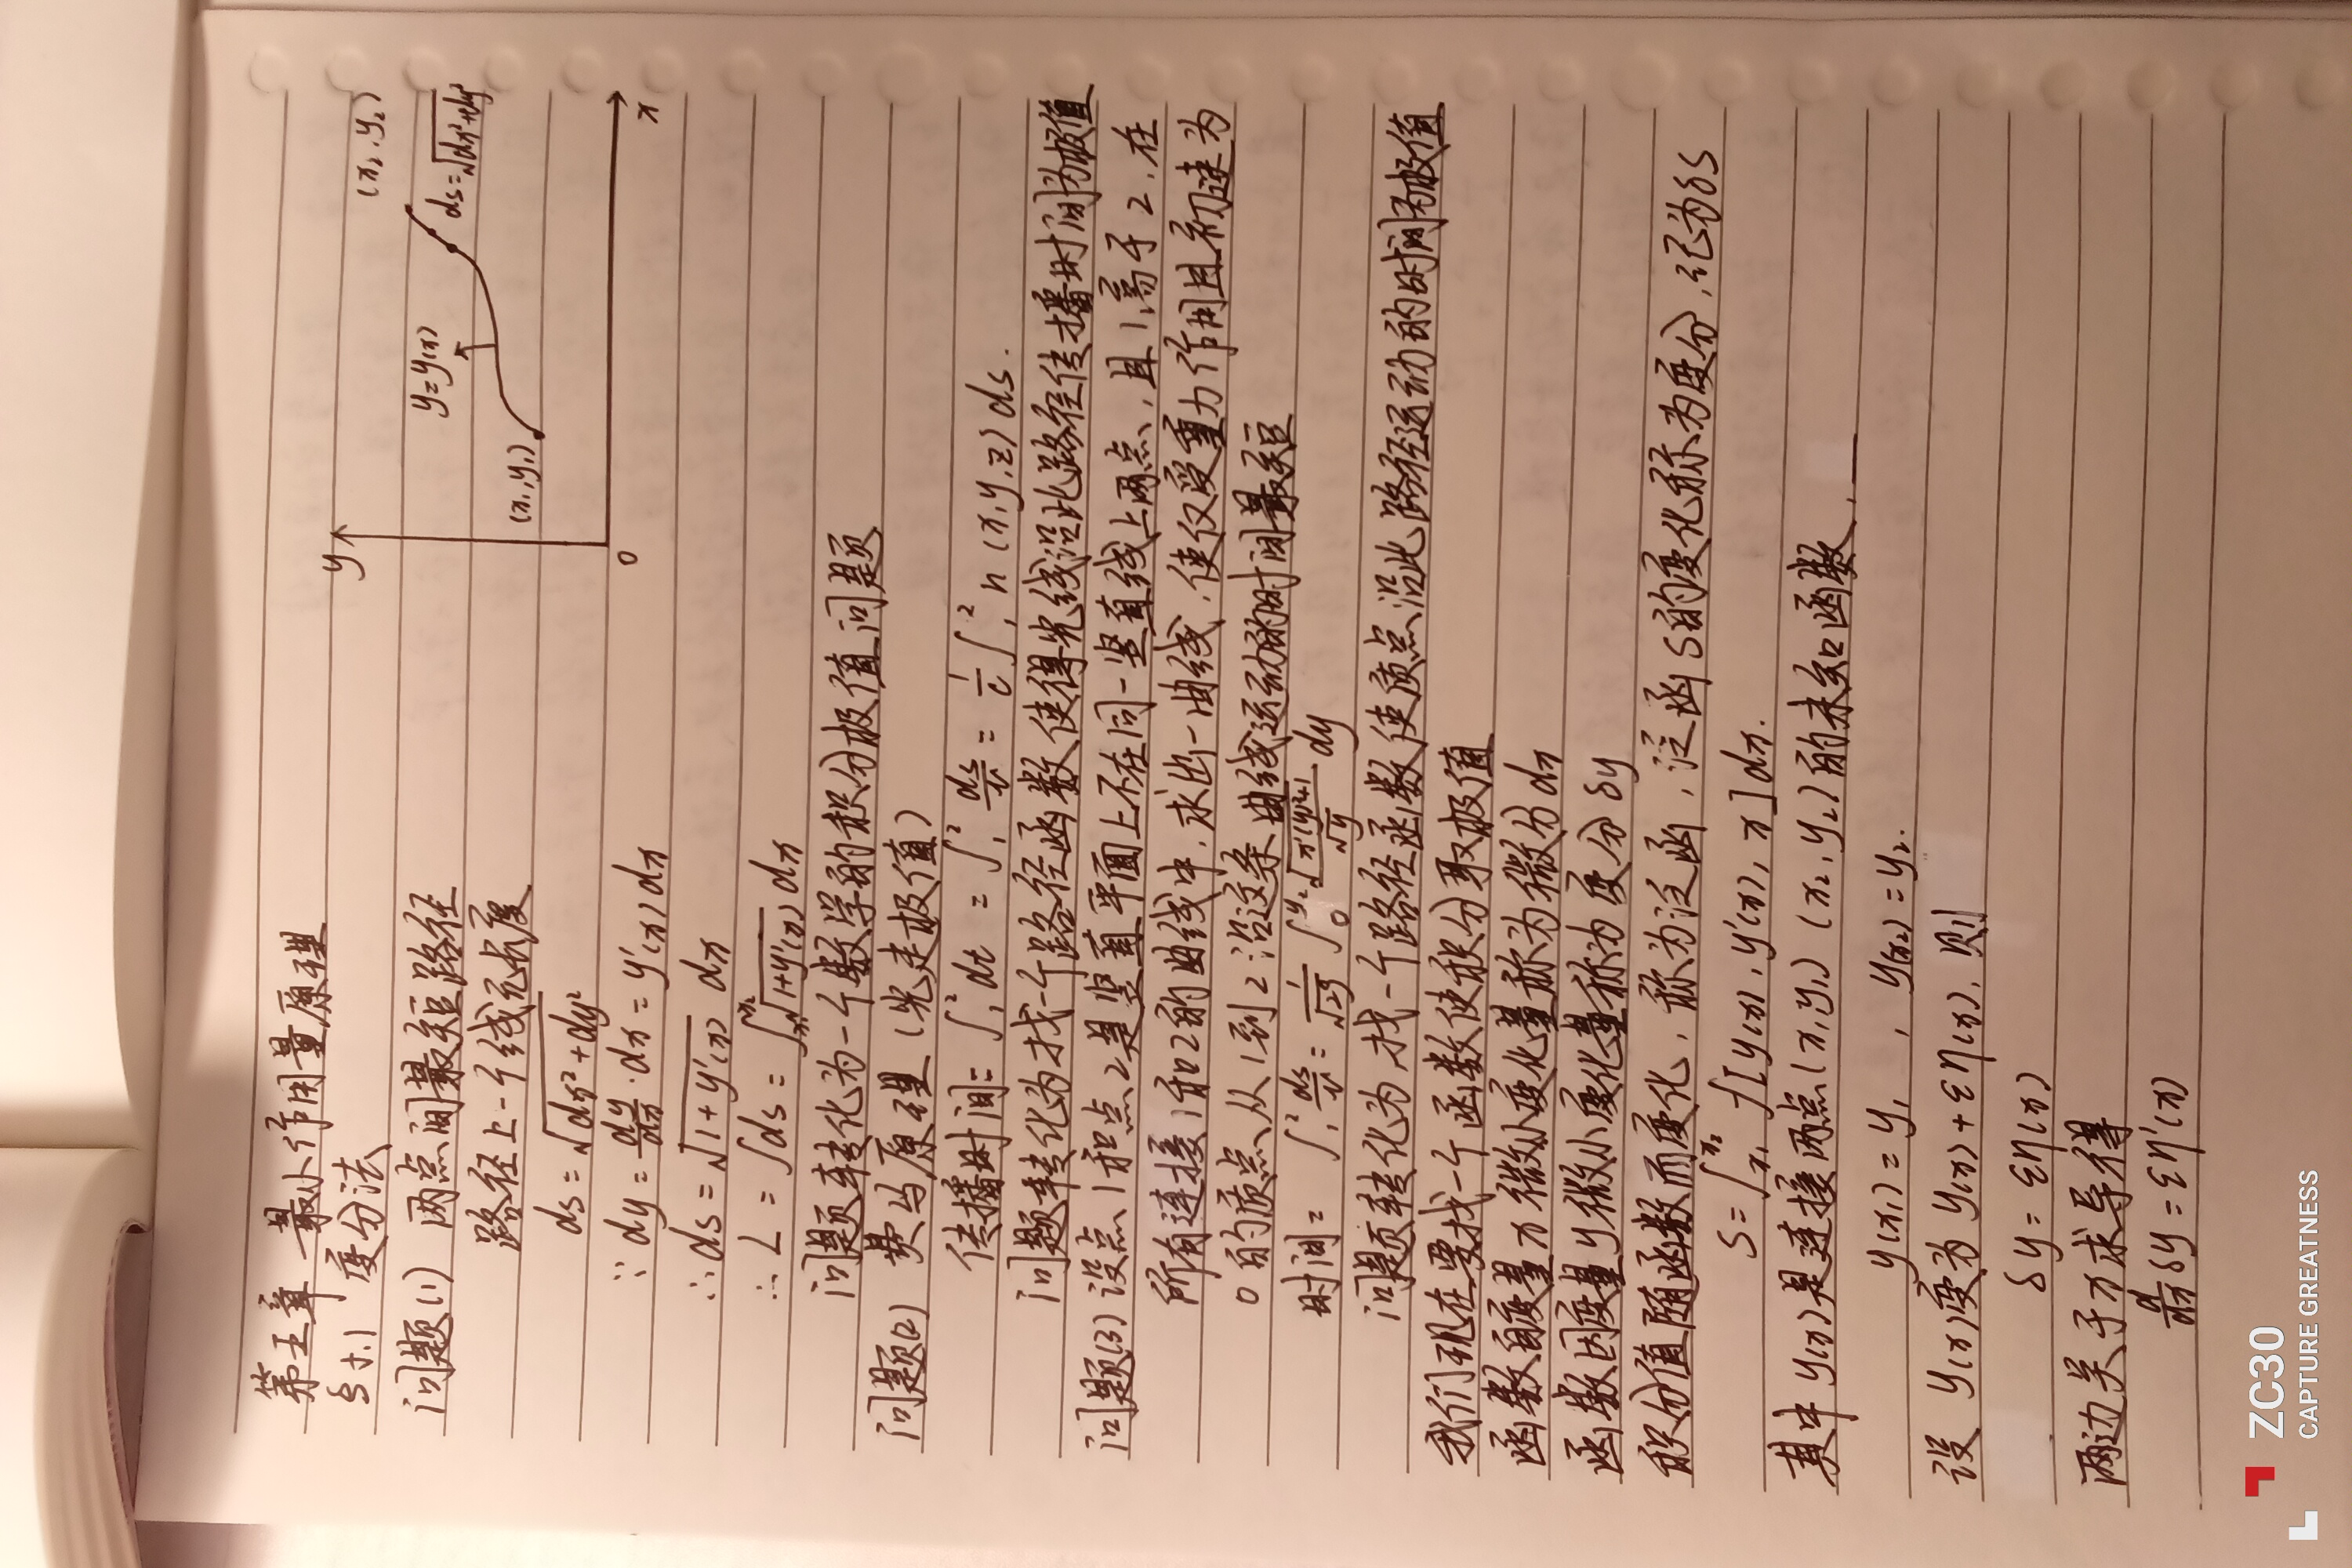 第五章 最小作用量原理
§5.1 变分法
问题(1) 两点间最短路径
路径上一个线元长度
ds=√dx²+dy²
∵ dy=dy/dx·dx=y'(x)dx
∴ ds=√1+y'(x) dx
∴ L=∫ds=∫x₁^x₂√1+y'(x) dx
y
y=y(x)
(x₁,y₁)
(x₂,y₂)
ds=√dx²+dy²
0
x
问题转化为一个数学的积分极值问题
问题(2) 费马原理(光走极值)
传播时间=∫₁²dt=∫₁² ds/v=1/c∫₁² n(x,y,z)ds.
问题转化为找一个路径函数使得光线沿此路径传播时间为极值
问题(3) 设点1和点2是竖直平面上不在同一竖直线上两点,且1高于2,在
所有连接1和2的曲线中,求出一曲线,使仅受重力作用且初速为
0的质点从1到2沿这条曲线运动的时间最短
时间=∫₁² ds/v=1/√2g∫₀^y₂ √x'(y)²+1/√y dy
问题转化为,找一个路径函数使质点沿此路径运动的时间为极值
我们现在要找一个函数使积分取极值
函数自变量x微小变化量称为微分dx
函数因变量y微小变化量称为变分δy
积分值随函数而变化,称为泛函,泛函S的变化称为变分,记为δS
S=∫x₁^x₂ f[y(x),y'(x),x]dx.
其中y(x)是连接两点(x₁,y₁)(x₂,y₂)的未知函数,
y(x₁)=y₁, y(x₂)=y₂.
设 y(x)变为y(x)+εη(x),则
δy=εη(x)
两边关于x求导得
d/dx δy=εη'(x)
ZC30
CAPTURE GREATNESS